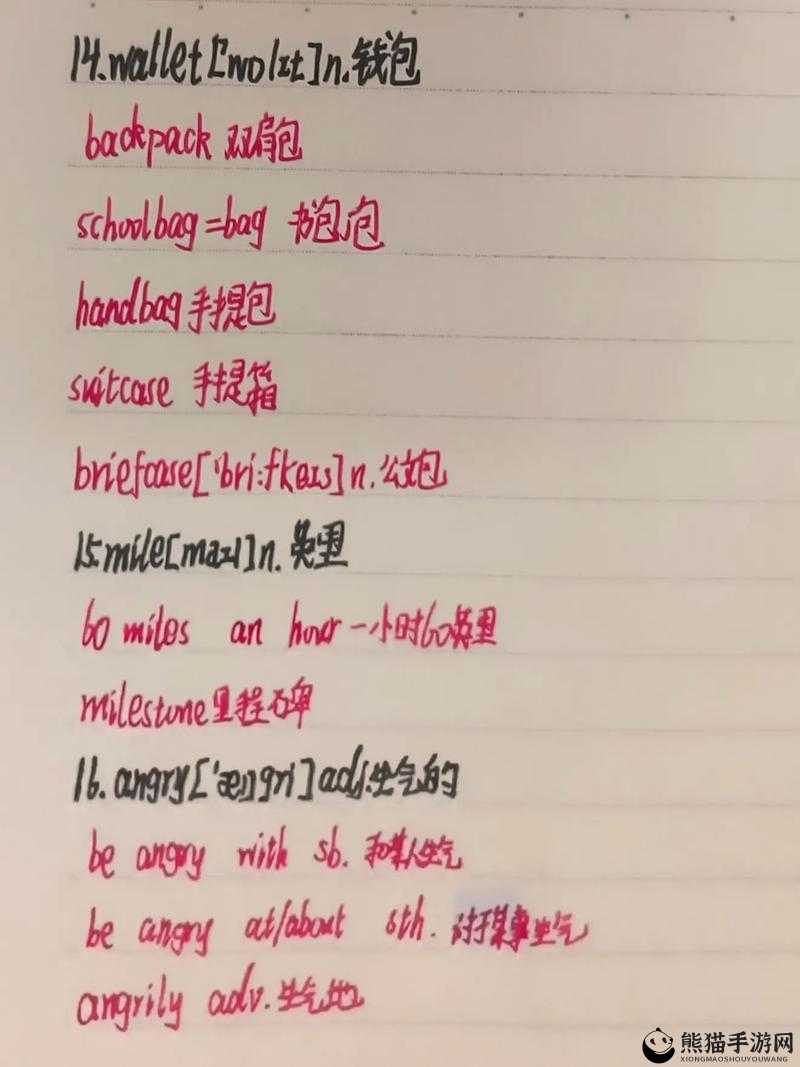 14.wallet[wolɪt]n.钱包
backpack 双肩包
schoolbag=bag 书包,包
handbag手提包
suitcase 手提箱
briefcase['bri:fkeɪs]n.公文包
15.mile[maɪl]n.英里
60 miles an hour 一小时60英里
milestone里程碑
16.angry['æŋgri]adj.生气的
be angry with sb. 和某人生气
be angry at/about sth. 对于某事生气
angrily adv.生气地
熊猫手游网
XIONGMAOSHOUYOUWANG